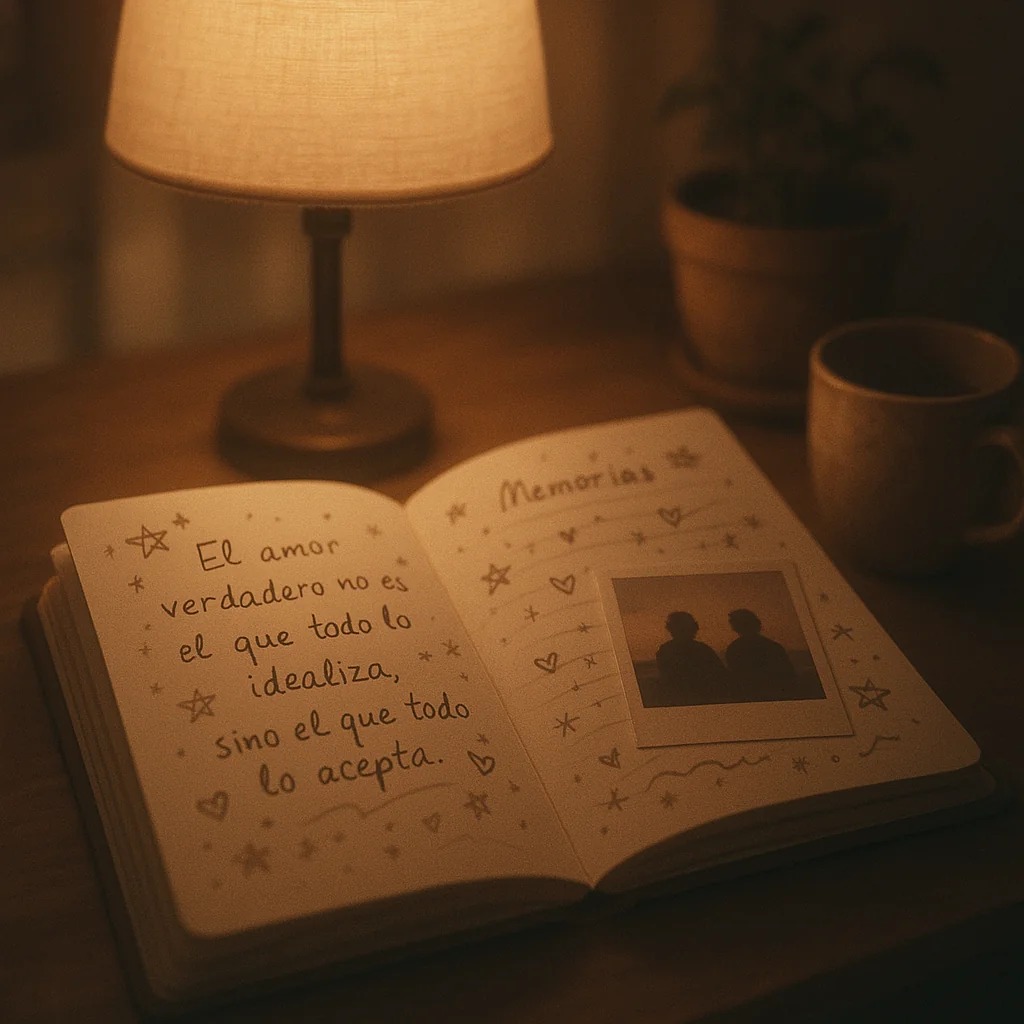 El amor
verdadero no es
el que todo lo
idealiza,
sino el que todo
lo acepta.
Memorias